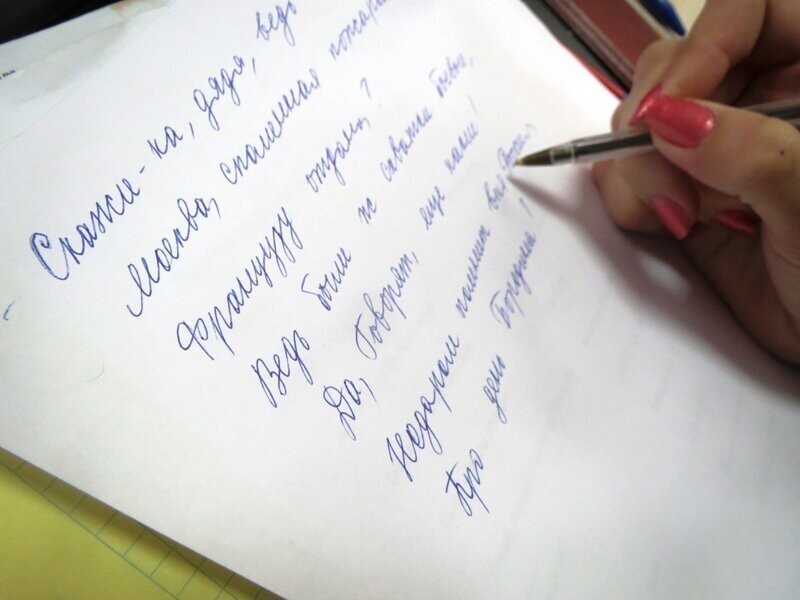 Скажи-ка, дядя, ведь
Москва, спаленная пожаром
Французу отдана?
Ведь были ж схватки боевые,
Да, Говорят, еще какие!
Недаром помнит вся
Про день Бородина!